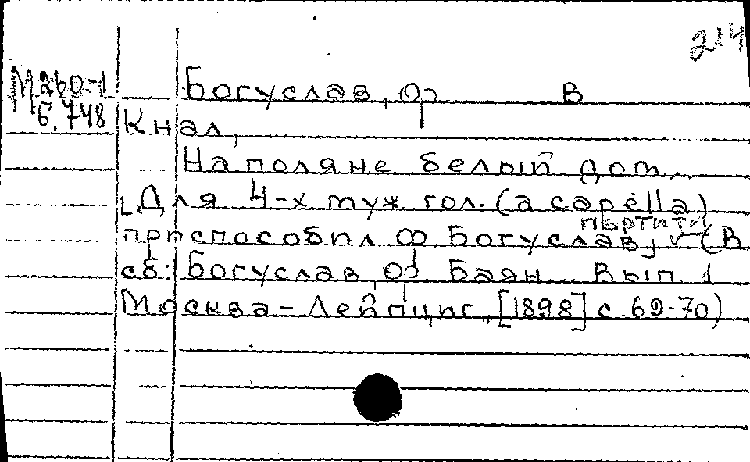 214
М260-1
Б.748
Богуслав, Ф В
Кнал,
На поляне белый дом.
[Для 4-х муж гол. (a capella)
партит.
приспособил Ф Богуслав] (В
сб: Богуслав, Ф. Баян. Вып. 1
Москва-Лейпциг, [1898] с 69-70)